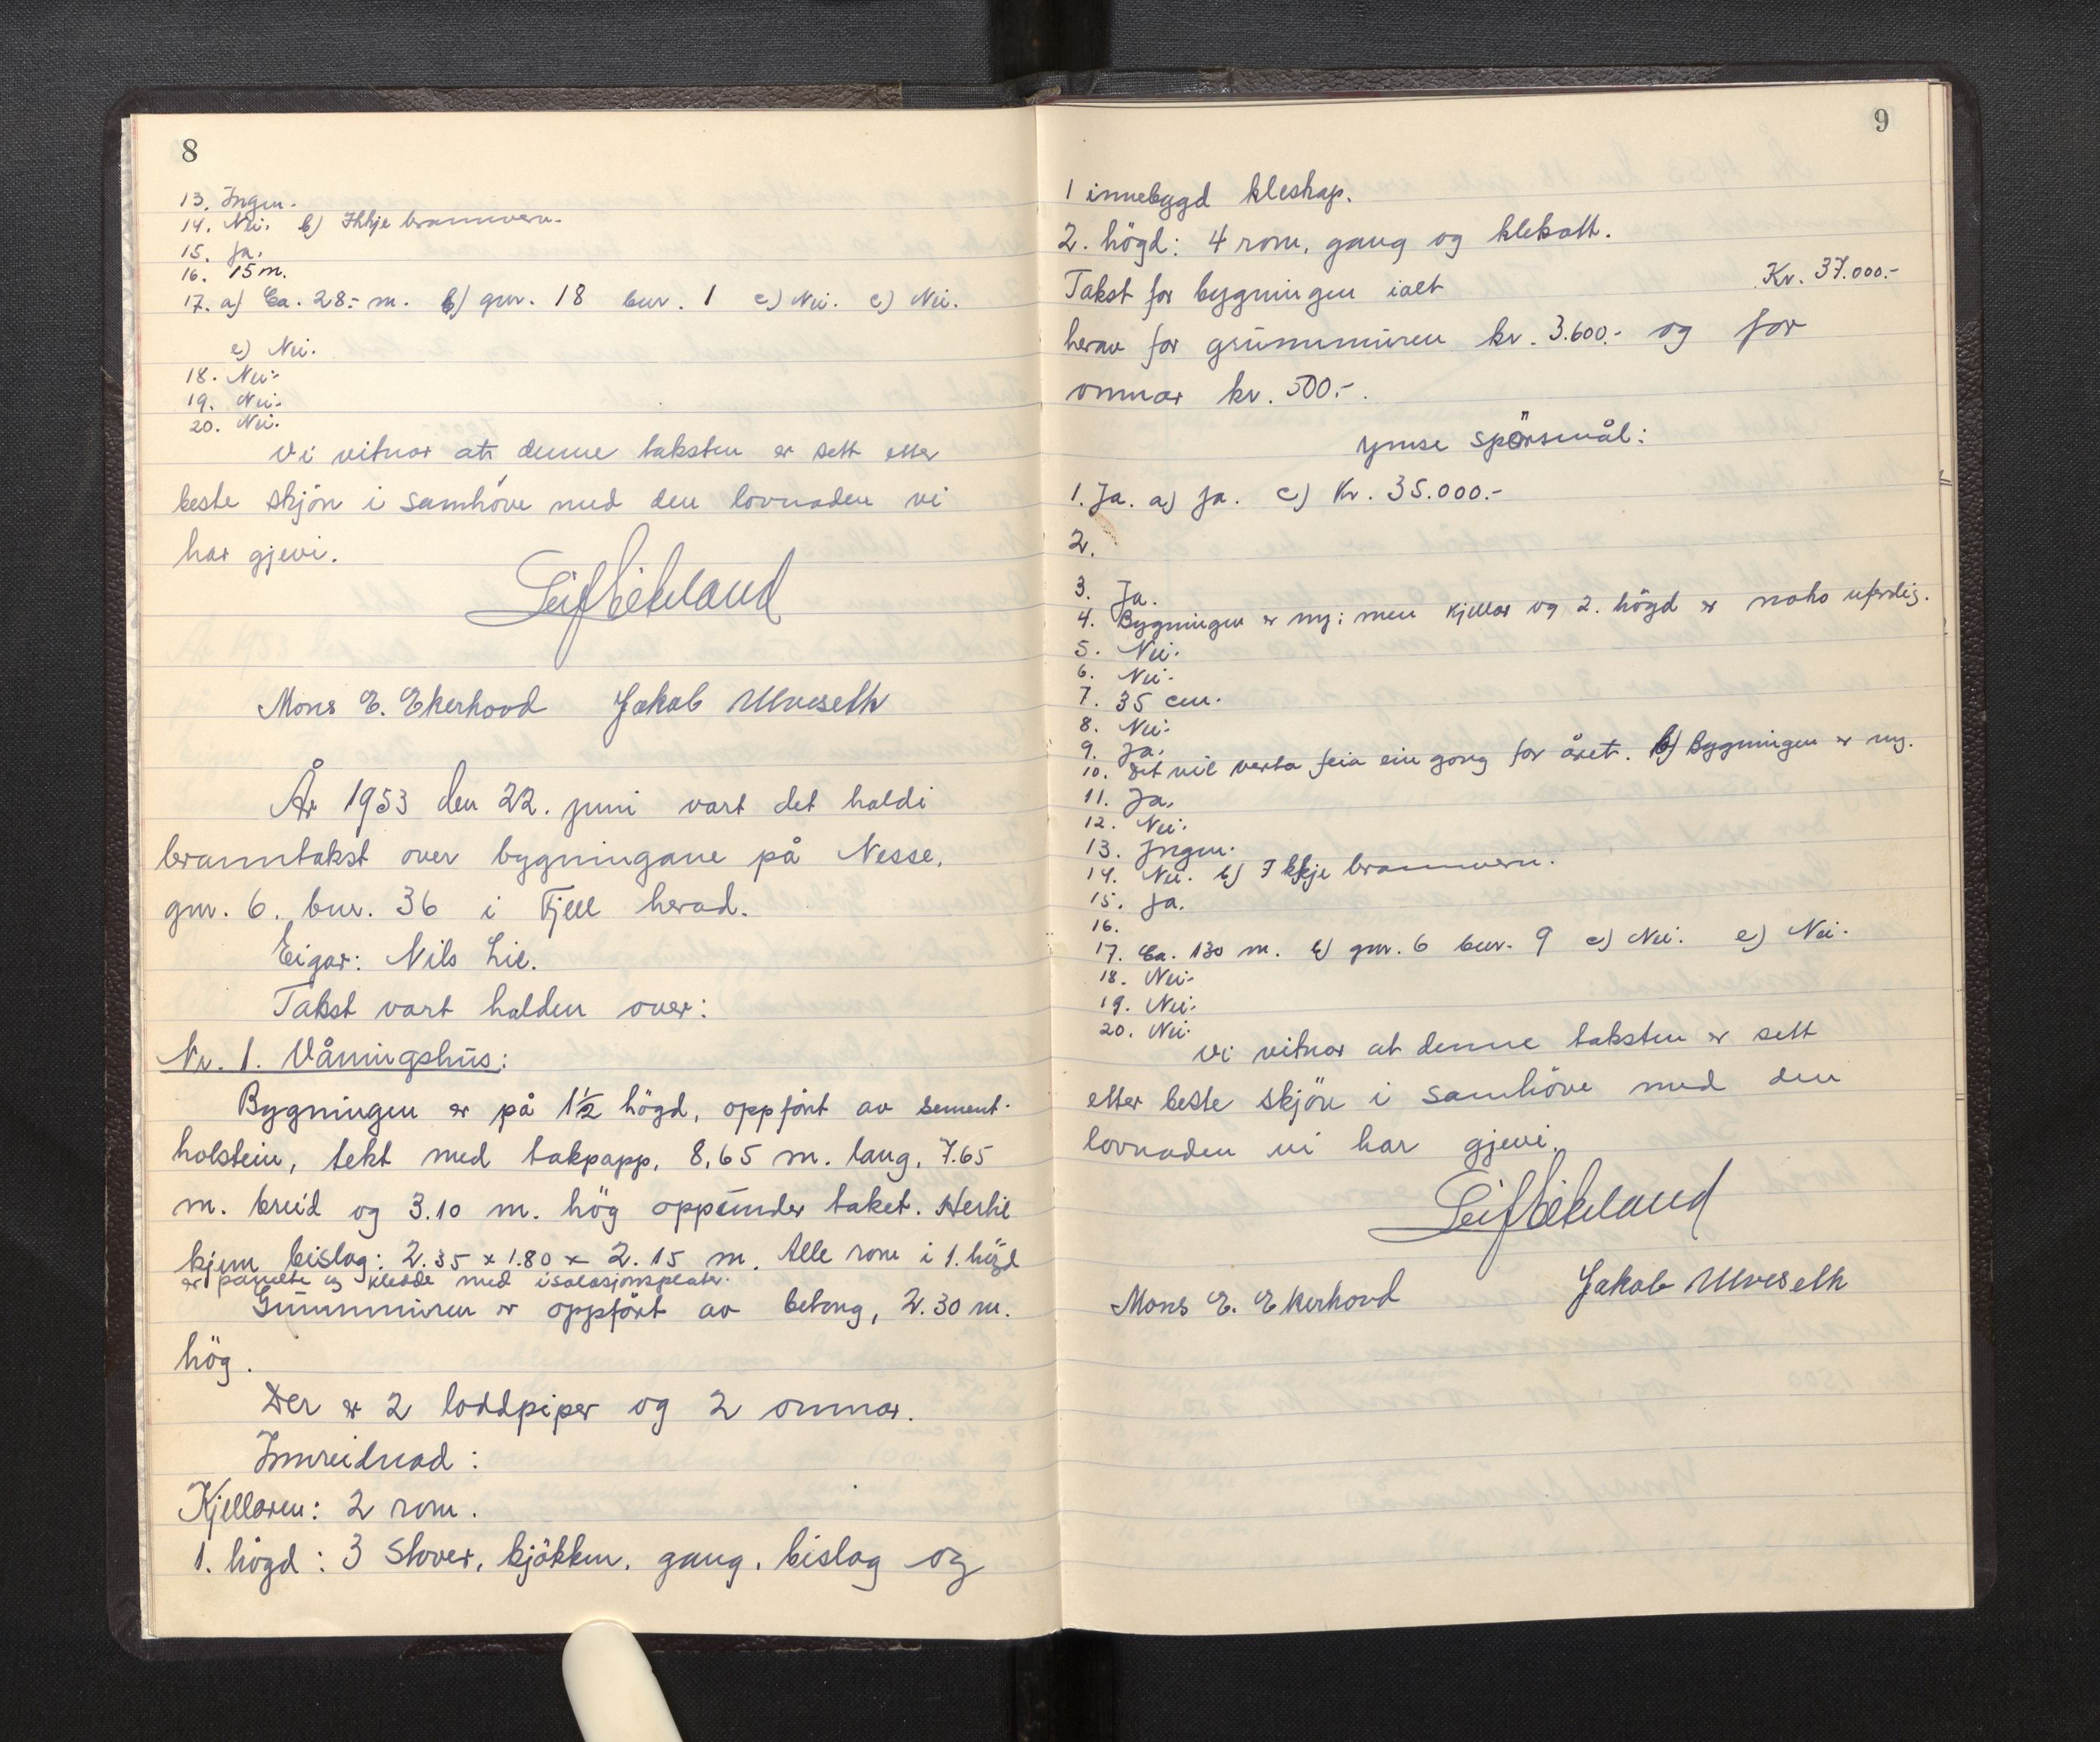 8
13. Ingen.
14. Nei. b) Ikkje brannvern.
15. Ja.
16. 15 m.
17. a) Ca. 28.- m. b) gnr. 18 bnr. 1 c) Nei. c) Nei.
e) Nei.
18. Nei.
19. Nei.
20. Nei.
Vi vitnar at denne taksten er sett etter
beste skjön i samhöve med den lovnaden vi
har gjevi.
Leif Ekeland
Mons E. Ekerhovd Jakob Ulveseth
År 1953 den 22. juni vart det haldi
branntakst over bygningane på Nesse,
gnr. 6. bnr. 36 i Fjell herad.
Eigar: Nils Lie.
Takst vart halden over:
Nr. 1. Våningshus:
Bygningen er på 1½ högd, oppfört av sement-
holstein, tekt med takpapp, 8,65 m. lang, 7.65
m. breid og 3.10 m. hög oppunder taket. Hertil
kjem bislag: 2.35 x 1.80 x 2.15 m. Alle rom i 1. högd
er panelte og kledde med isolasjonsplater.
Grunnmuren er oppfört av betong, 2.30 m.
hög.
Der er 2 loddpiper og 2 omnar.
Innreidnad:
Kjellaren: 2 rom.
1. högd: 3 stover, kjökken, gang, bislag og
9
1 innebygd kleskap.
2. högd: 4 rom, gang og klekott.
Takst for bygningen ialt Kr. 37.000.-
herav for grunnmuren kr. 3.600.- og for
omnar kr. 500.-.
Ymse spörsmål:
1. Ja. a) Ja. c) Kr. 35.000.-
2.
3. Ja.
4. Bygningen er ny; men kjellar og 2. högd er noko uferdig.
5. Nei.
6. Nei.
7. 35 cm.
8. Nei.
9. Ja.
10. Det vil verta feia ein gong for året. b) Bygningen er ny.
11. Ja.
12. Nei.
13. Ingen.
14. Nei. b) Ikkje brannvern.
15. Ja.
16.
17. Ca. 130 m. b) gnr. 6 bnr. 9 c) Nei. e) Nei.
18. Nei.
19. Nei.
20. Nei.
Vi vitnar at denne taksten er sett
etter beste skjön i samhöve med den
lovnaden vi har gjevi.
Leif Ekeland
Mons E. Ekerhovd Jakob Ulveseth